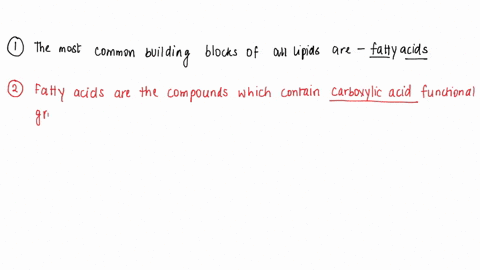 ① The most common building blocks of all lipids are - fatty acids
② Fatty acids are the compounds which contain carboxylic acid functional
gr